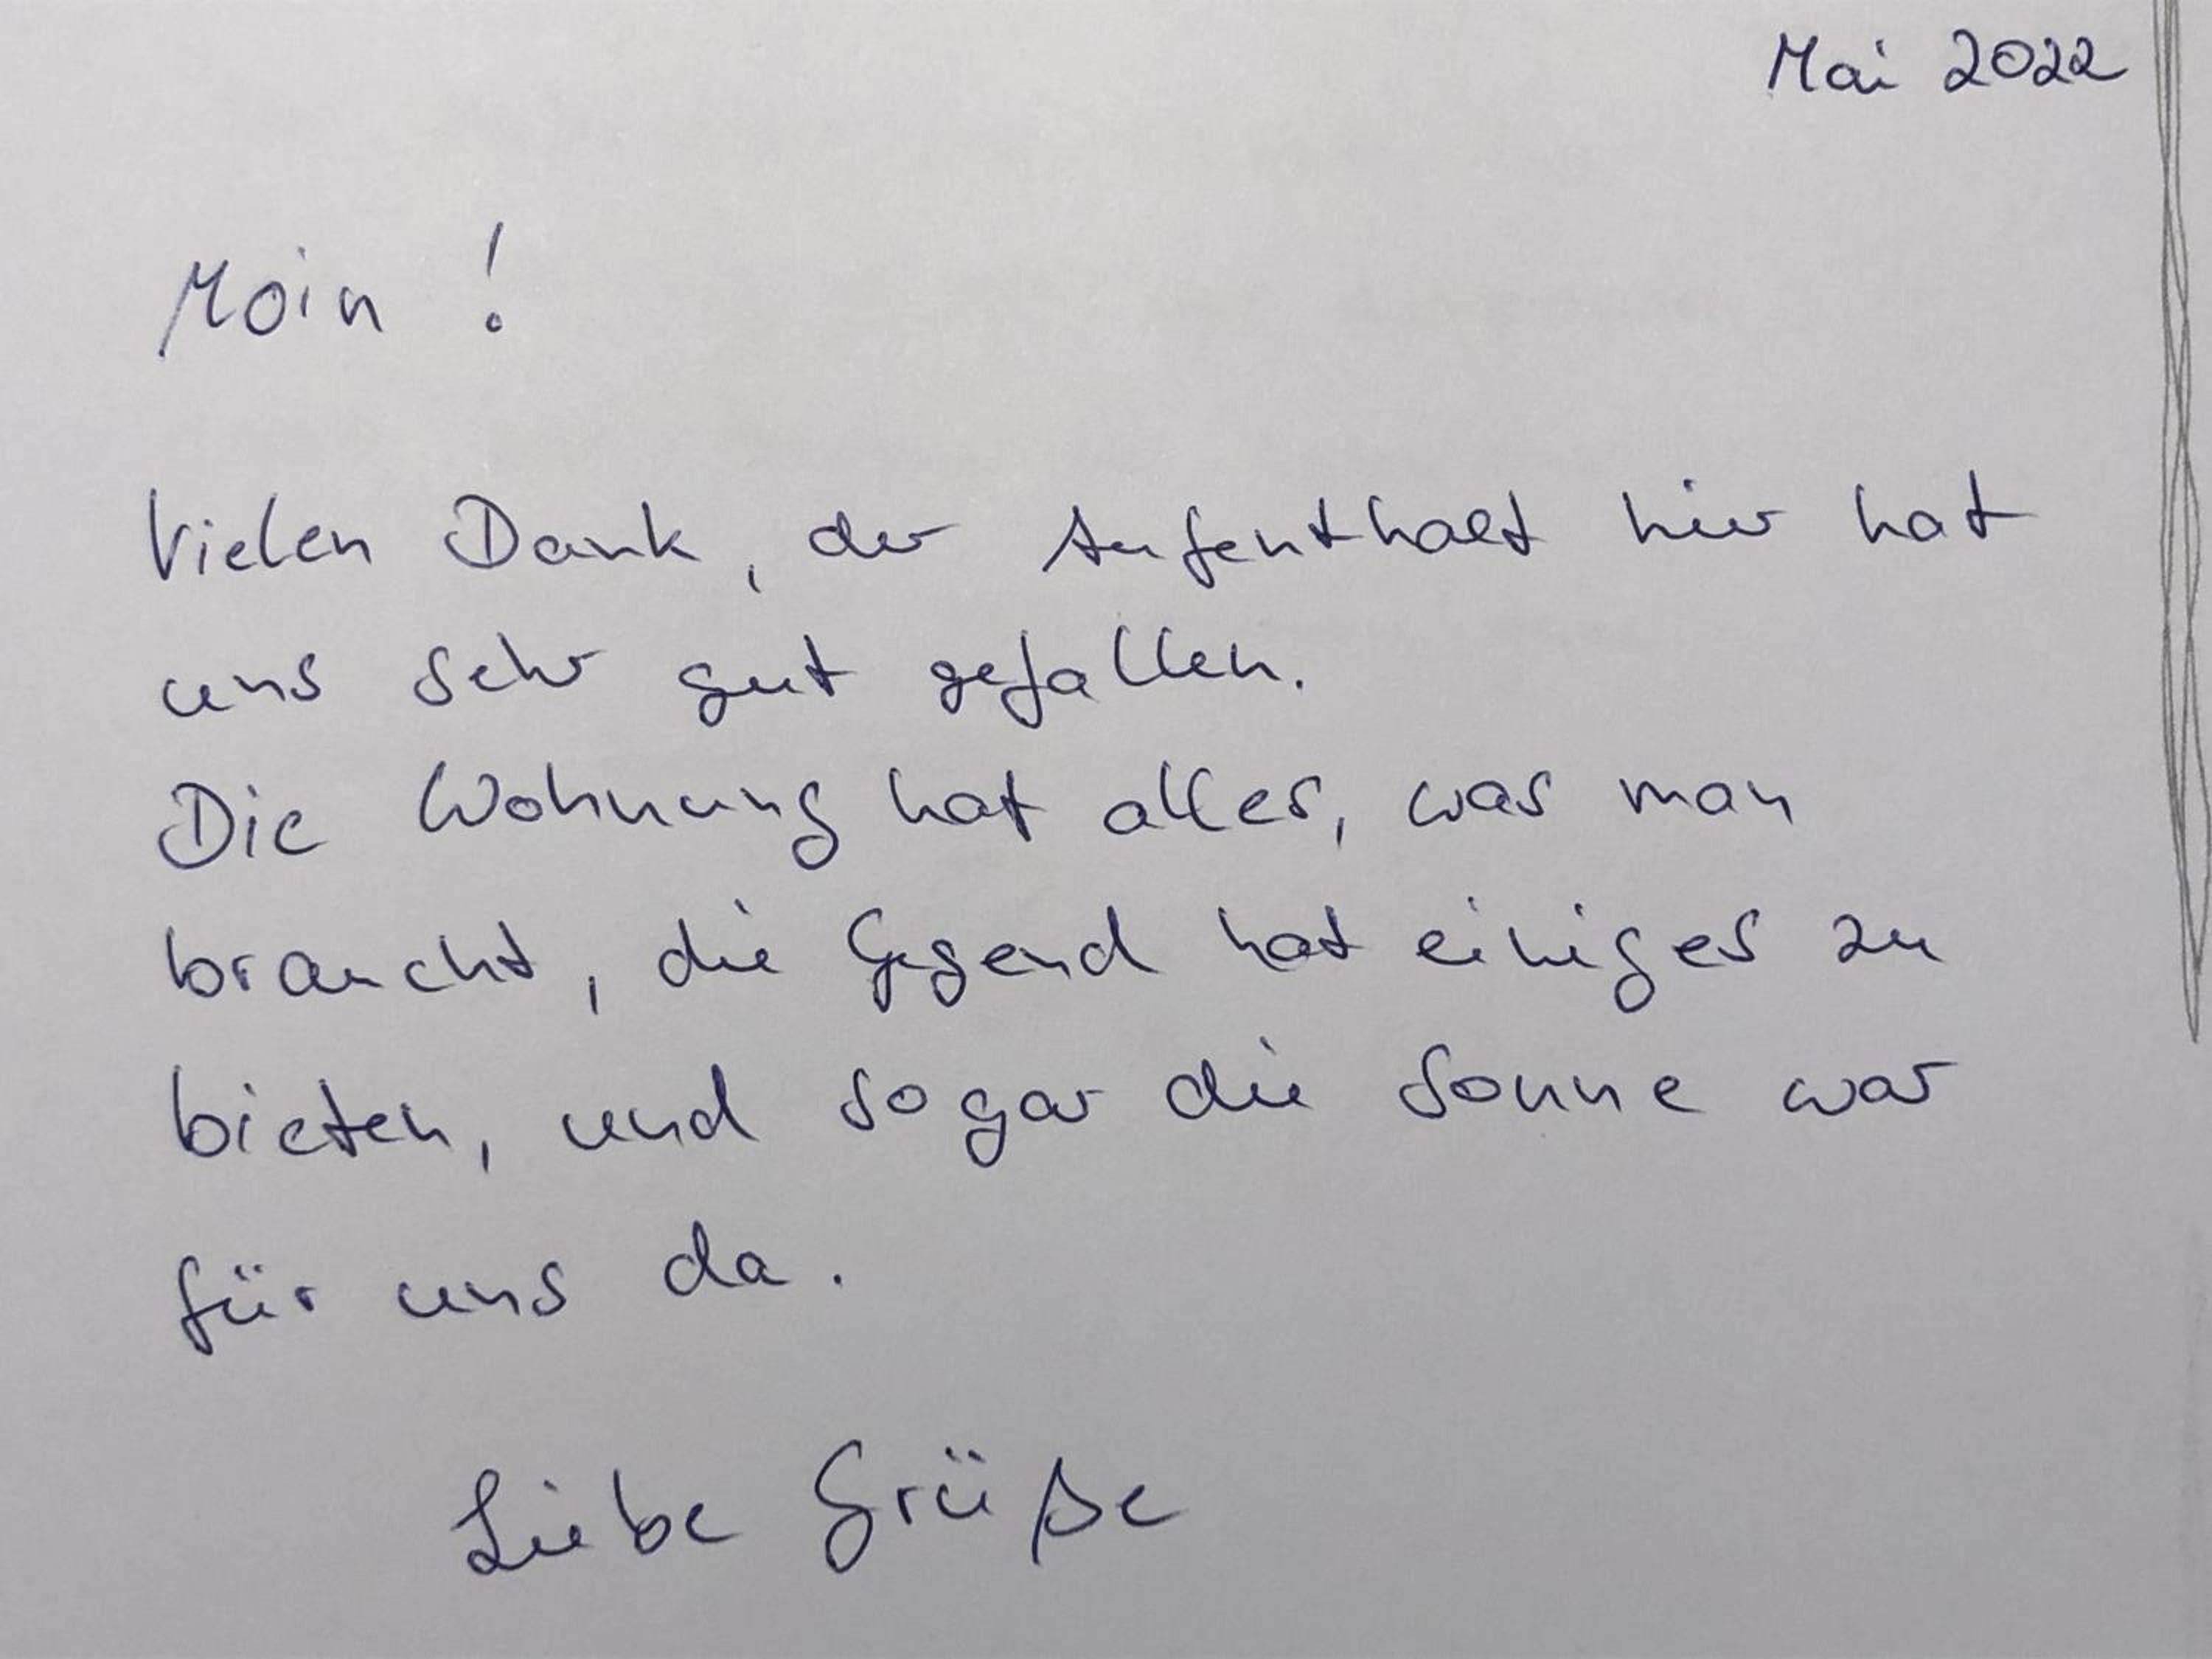 Mai 2022
Moin !
Vielen Dank, der Aufenthalt hier hat
uns sehr gut gefallen.
Die Wohnung hat alles, was man
braucht, die Gegend hat einiges zu
bieten, und sogar die Sonne war
für uns da.
Liebe Grüße